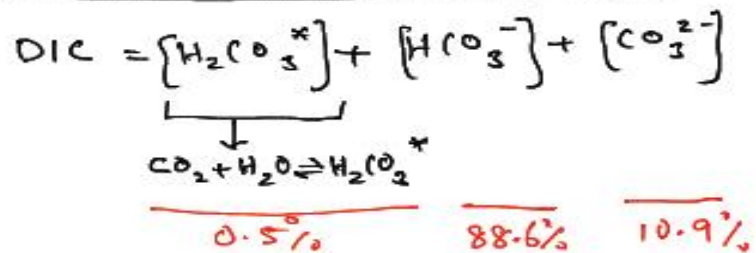 DIC = [H₂CO₃*] + [HCO₃⁻] + [CO₃²⁻]
CO₂ + H₂O ⇌ H₂CO₃*
0.5% 88.6% 10.9%